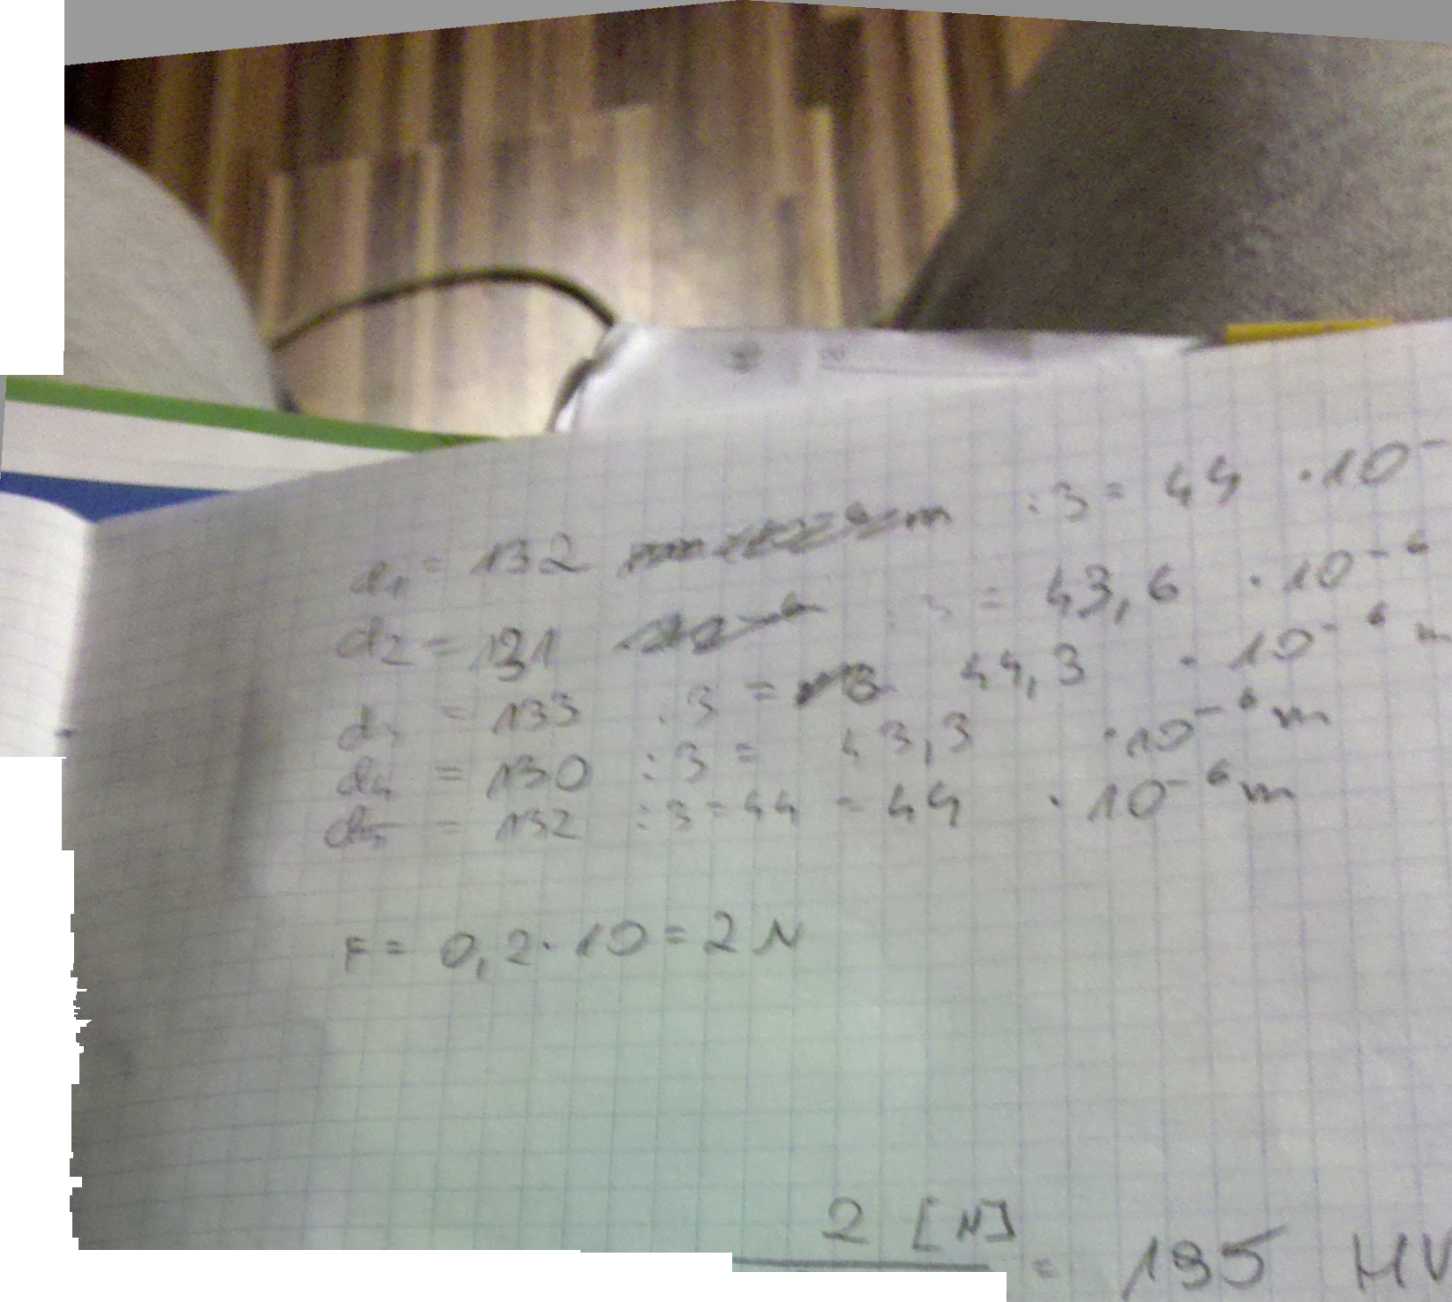 d1 = 132 m : 3 = 44 · 10⁻
d2 = 131 : 3 = 43,6 · 10⁻⁶
d3 = 133 : 3 = 44,3 · 10⁻⁶ m
d4 = 130 : 3 = 43,3 · 10⁻⁶ m
d5 = 132 : 3 = 44 = 44 · 10⁻⁶ m
F = 0,2 · 10 = 2 N
2 [N] = 195 HV